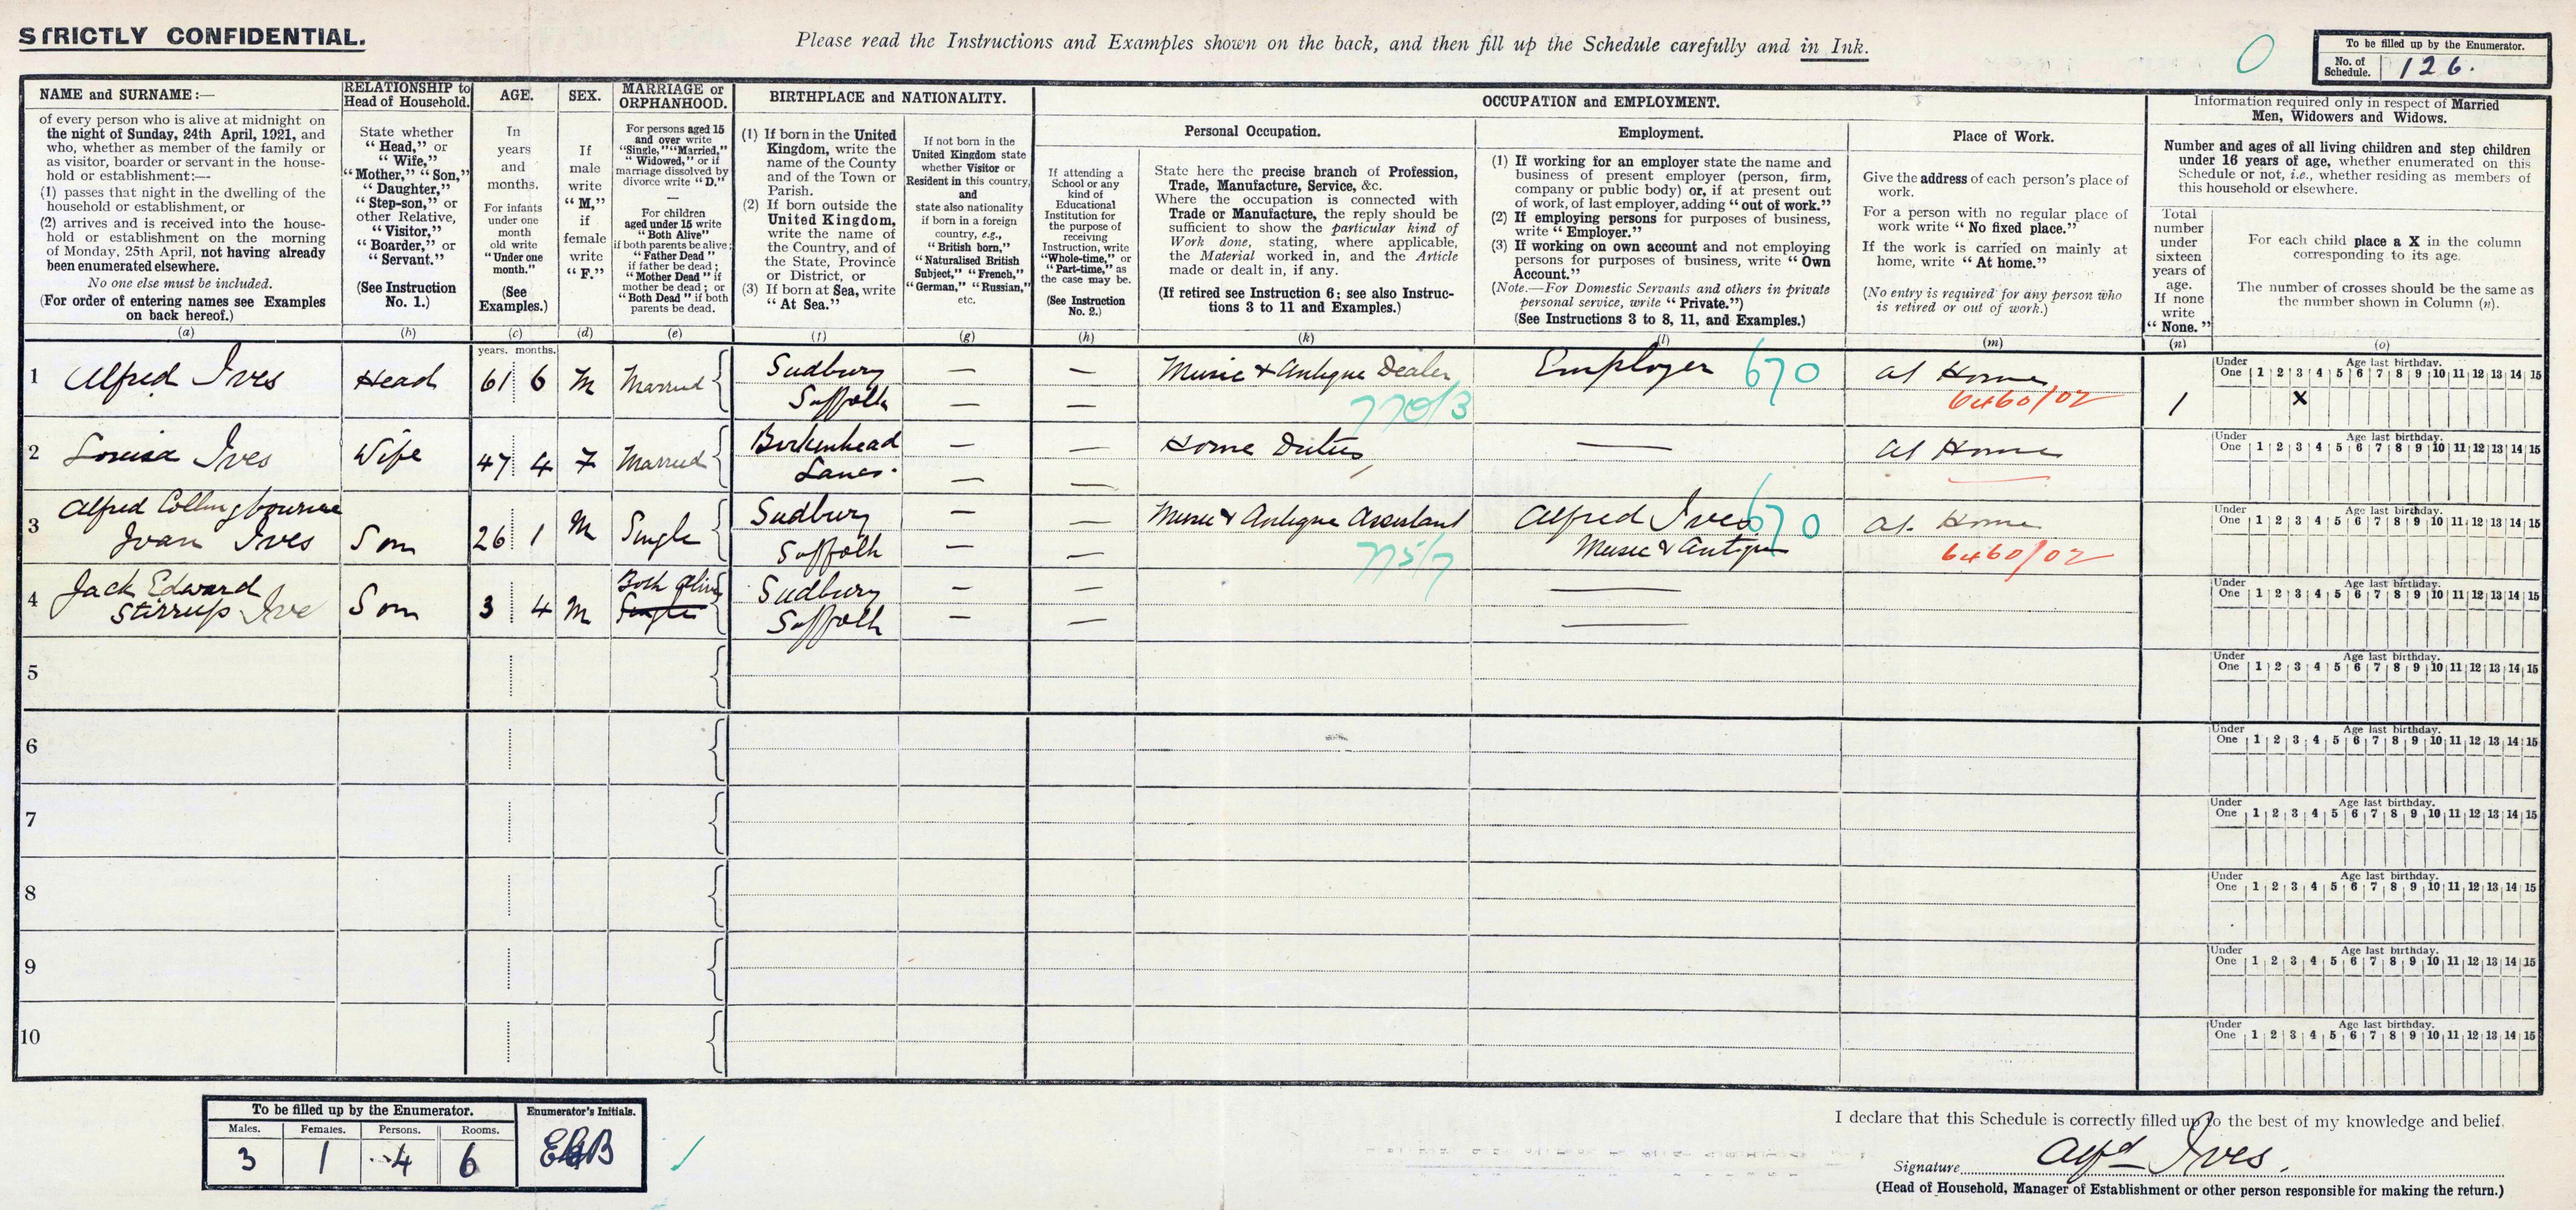 STRICTLY CONFIDENTIAL.
Please read the Instructions and Examples shown on the back, and then fill up the Schedule carefully and in Ink.
0
To be filled up by the Enumerator.
No. of Schedule. 126.
NAME and SURNAME:—
of every person who is alive at midnight on
the night of Sunday, 24th April, 1921, and
who, whether as member of the family or
as visitor, boarder or servant in the house-
hold or establishment:—
(1) passes that night in the dwelling of the
household or establishment, or
(2) arrives and is received into the house-
hold or establishment on the morning
of Monday, 25th April, not having already
been enumerated elsewhere.
No one else must be included.
(For order of entering names see Examples
on back hereof.)
(a)
RELATIONSHIP to
Head of Household.
State whether
"Head," or
"Wife,"
"Mother," "Son,"
"Daughter,"
"Step-son," or
other Relative,
"Visitor,"
"Boarder," or
"Servant."
(See Instruction
No. 1.)
(b)
AGE.
In
years
and
months.
For infants
under one
month
old write
"Under one
month."
(See
Examples.)
(c)
SEX.
If
male
write
"M,"
if
female
write
"F."
(d)
MARRIAGE or
ORPHANHOOD.
For persons aged 15
and over write
"Single," "Married,"
"Widowed," or if
marriage dissolved by
divorce write "D."
—
For children
aged under 15 write
"Both Alive"
if both parents be alive;
"Father Dead"
if father be dead;
"Mother Dead" if
mother be dead; or
"Both Dead" if both
parents be dead.
(e)
BIRTHPLACE and NATIONALITY.
(1) If born in the United
Kingdom, write the
name of the County
and of the Town or
Parish.
(2) If born outside the
United Kingdom,
write the name of
the Country, and of
the State, Province
or District, or
(3) If born at Sea, write
"At Sea."
(f)
If not born in the
United Kingdom state
whether Visitor or
Resident in this country,
and
state also nationality
if born in a foreign
country, e.g.,
"British born,"
"Naturalised British
Subject," "French,"
"German," "Russian,"
etc.
(g)
OCCUPATION and EMPLOYMENT.
If attending a
School or any
kind of
Educational
Institution for
the purpose of
receiving
Instruction, write
"Whole-time," or
"Part-time," as
the case may be.
(See Instruction
No. 2.)
(h)
Personal Occupation.
State here the precise branch of Profession,
Trade, Manufacture, Service, &c.
Where the occupation is connected with
Trade or Manufacture, the reply should be
sufficient to show the particular kind of
Work done, stating, where applicable,
the Material worked in, and the Article
made or dealt in, if any.
(If retired see Instruction 6; see also Instruc-
tions 3 to 11 and Examples.)
(k)
Employment.
(1) If working for an employer state the name and
business of present employer (person, firm,
company or public body) or, if at present out
of work, of last employer, adding "out of work."
(2) If employing persons for purposes of business,
write "Employer."
(3) If working on own account and not employing
persons for purposes of business, write "Own
Account."
(Note.—For Domestic Servants and others in private
personal service, write "Private.")
(See Instructions 3 to 8, 11, and Examples.)
(l)
Place of Work.
Give the address of each person's place of
work.
For a person with no regular place of
work write "No fixed place."
If the work is carried on mainly at
home, write "At home."
(No entry is required for any person who
is retired or out of work.)
(m)
Information required only in respect of Married
Men, Widowers and Widows.
Number and ages of all living children and step children
under 16 years of age, whether enumerated on this
Schedule or not, i.e., whether residing as members of
this household or elsewhere.
Total
number
under
sixteen
years of
age.
If none
write
"None."
(n)
For each child place a X in the column
corresponding to its age.
The number of crosses should be the same as
the number shown in Column (n).
(o)
years. months.
1 Alfred Ives Head 61 6 M Married Sudbury Suffolk — — — — Music & Antique Dealer 770/3 Employer 670 at Home 6460/02 1
Under One Age last birthday. 1 2 3 4 5 6 7 8 9 10 11 12 13 14 15
X
2 Louisa Ives Wife 47 4 F Married Birkenhead Lancs. — — — — Home Duties — at Home
Under One Age last birthday. 1 2 3 4 5 6 7 8 9 10 11 12 13 14 15
3 Alfred Collingbourne
Ivan Ives Son 26 1 M Single Sudbury Suffolk — — — — Music & Antique Assistant 775/7 Alfred Ives 670 Music & Antique at Home 6460/02
Under One Age last birthday. 1 2 3 4 5 6 7 8 9 10 11 12 13 14 15
4 Jack Edward
Stirrup Ive Son 3 4 M Both Alive Single Sudbury Suffolk — — — — — —
Under One Age last birthday. 1 2 3 4 5 6 7 8 9 10 11 12 13 14 15
5
Under One Age last birthday. 1 2 3 4 5 6 7 8 9 10 11 12 13 14 15
6
Under One Age last birthday. 1 2 3 4 5 6 7 8 9 10 11 12 13 14 15
7
Under One Age last birthday. 1 2 3 4 5 6 7 8 9 10 11 12 13 14 15
8
Under One Age last birthday. 1 2 3 4 5 6 7 8 9 10 11 12 13 14 15
9
Under One Age last birthday. 1 2 3 4 5 6 7 8 9 10 11 12 13 14 15
10
Under One Age last birthday. 1 2 3 4 5 6 7 8 9 10 11 12 13 14 15
To be filled up by the Enumerator.
Males. Females. Persons. Rooms.
3 1 4 6
Enumerator's Initials.
I declare that this Schedule is correctly filled up to the best of my knowledge and belief.
Signature Alfd Ives.
(Head of Household, Manager of Establishment or other person responsible for making the return.)